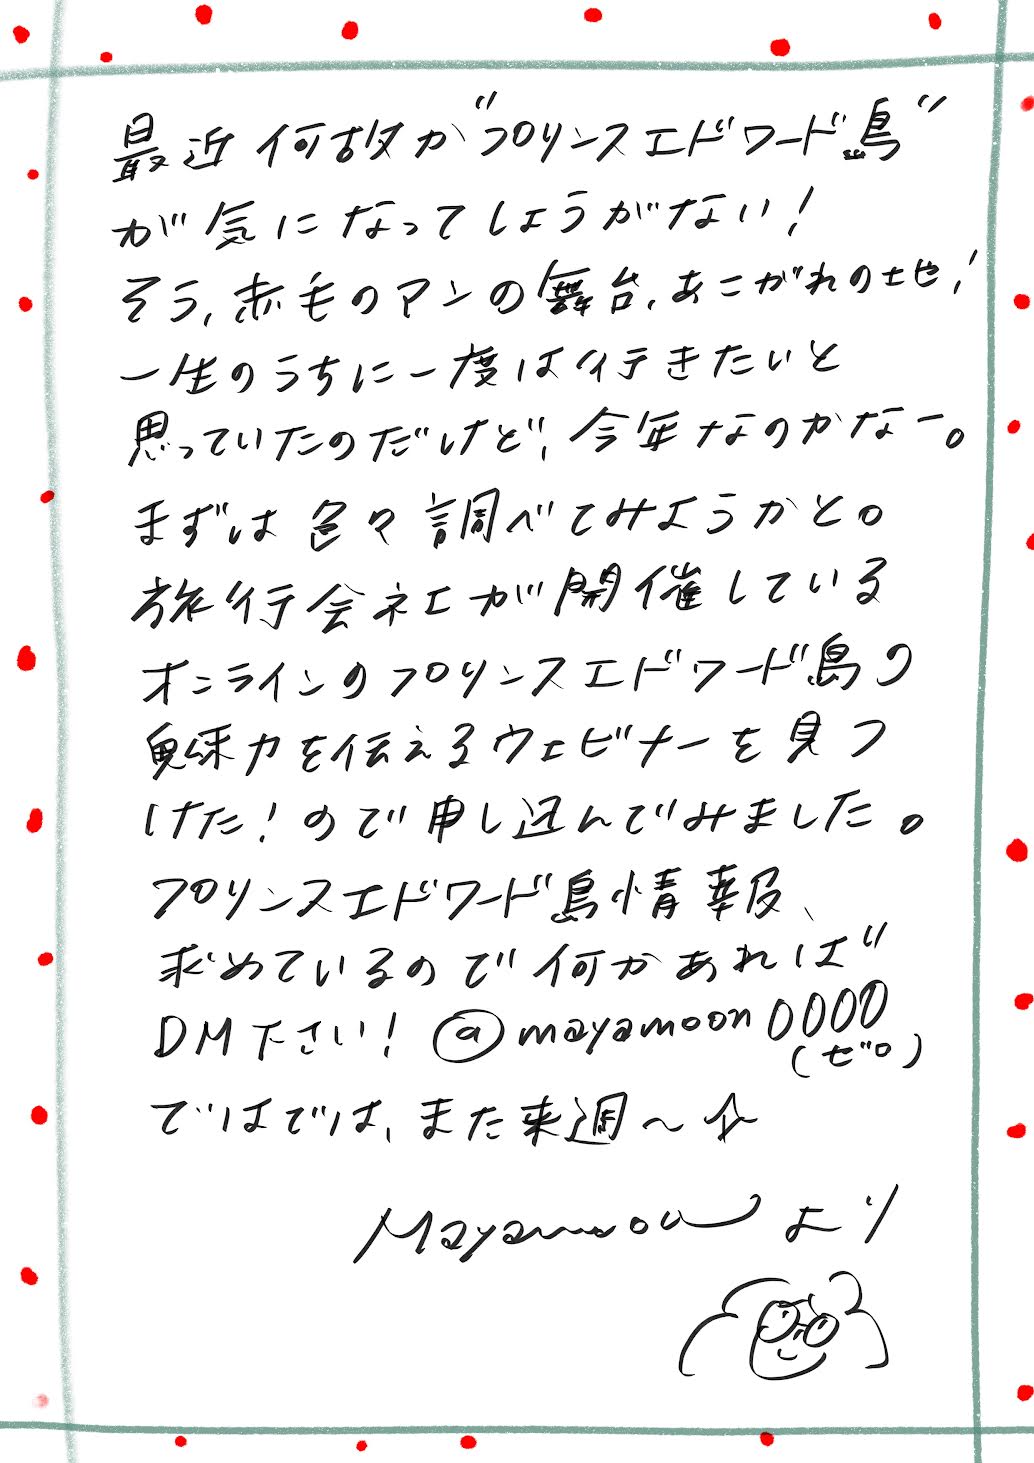 最近何故か"プリンスエドワード島"
が気になってしょうがない!
そう、赤毛のアンの舞台、あこがれの土地!
一生のうちに一度は行きたいと
思っていたのだけど、今年なのかなー。
まずは色々調べてみようかと。
旅行会社が開催している
オンラインのプリンスエドワード島の
魅力を伝えるウェビナーを見つ
けた!ので申し込んでみました。
プリンスエドワード島情報、
求めているので何かあれば
DM下さい! @mayamoon0000
(ゼロ)
ではでは、また来週〜☆
Mayamoonより